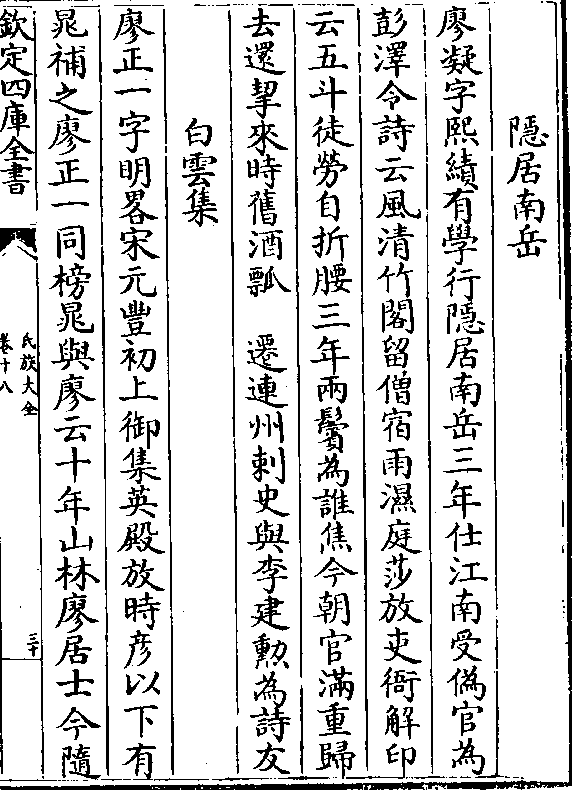 隠居南岳
廖凝字熙績有學行隠居南岳三年仕江南受僞官為
彭澤令詩云風清竹閣留僧宿雨濕庭莎放吏衙解印
云五斗徒勞自折腰三年兩鬢為誰焦今朝官滿重歸
去還挈來時舊酒瓢　遷連州刺史與李建勲為詩友
白雲集
廖正一字明畧宋元豐初上御集英殿放時彦以下有
晁補之廖正一同榜晁與廖云十年山林廖居士今隨
欽定四庫全書
氏族大全
卷十八
三十